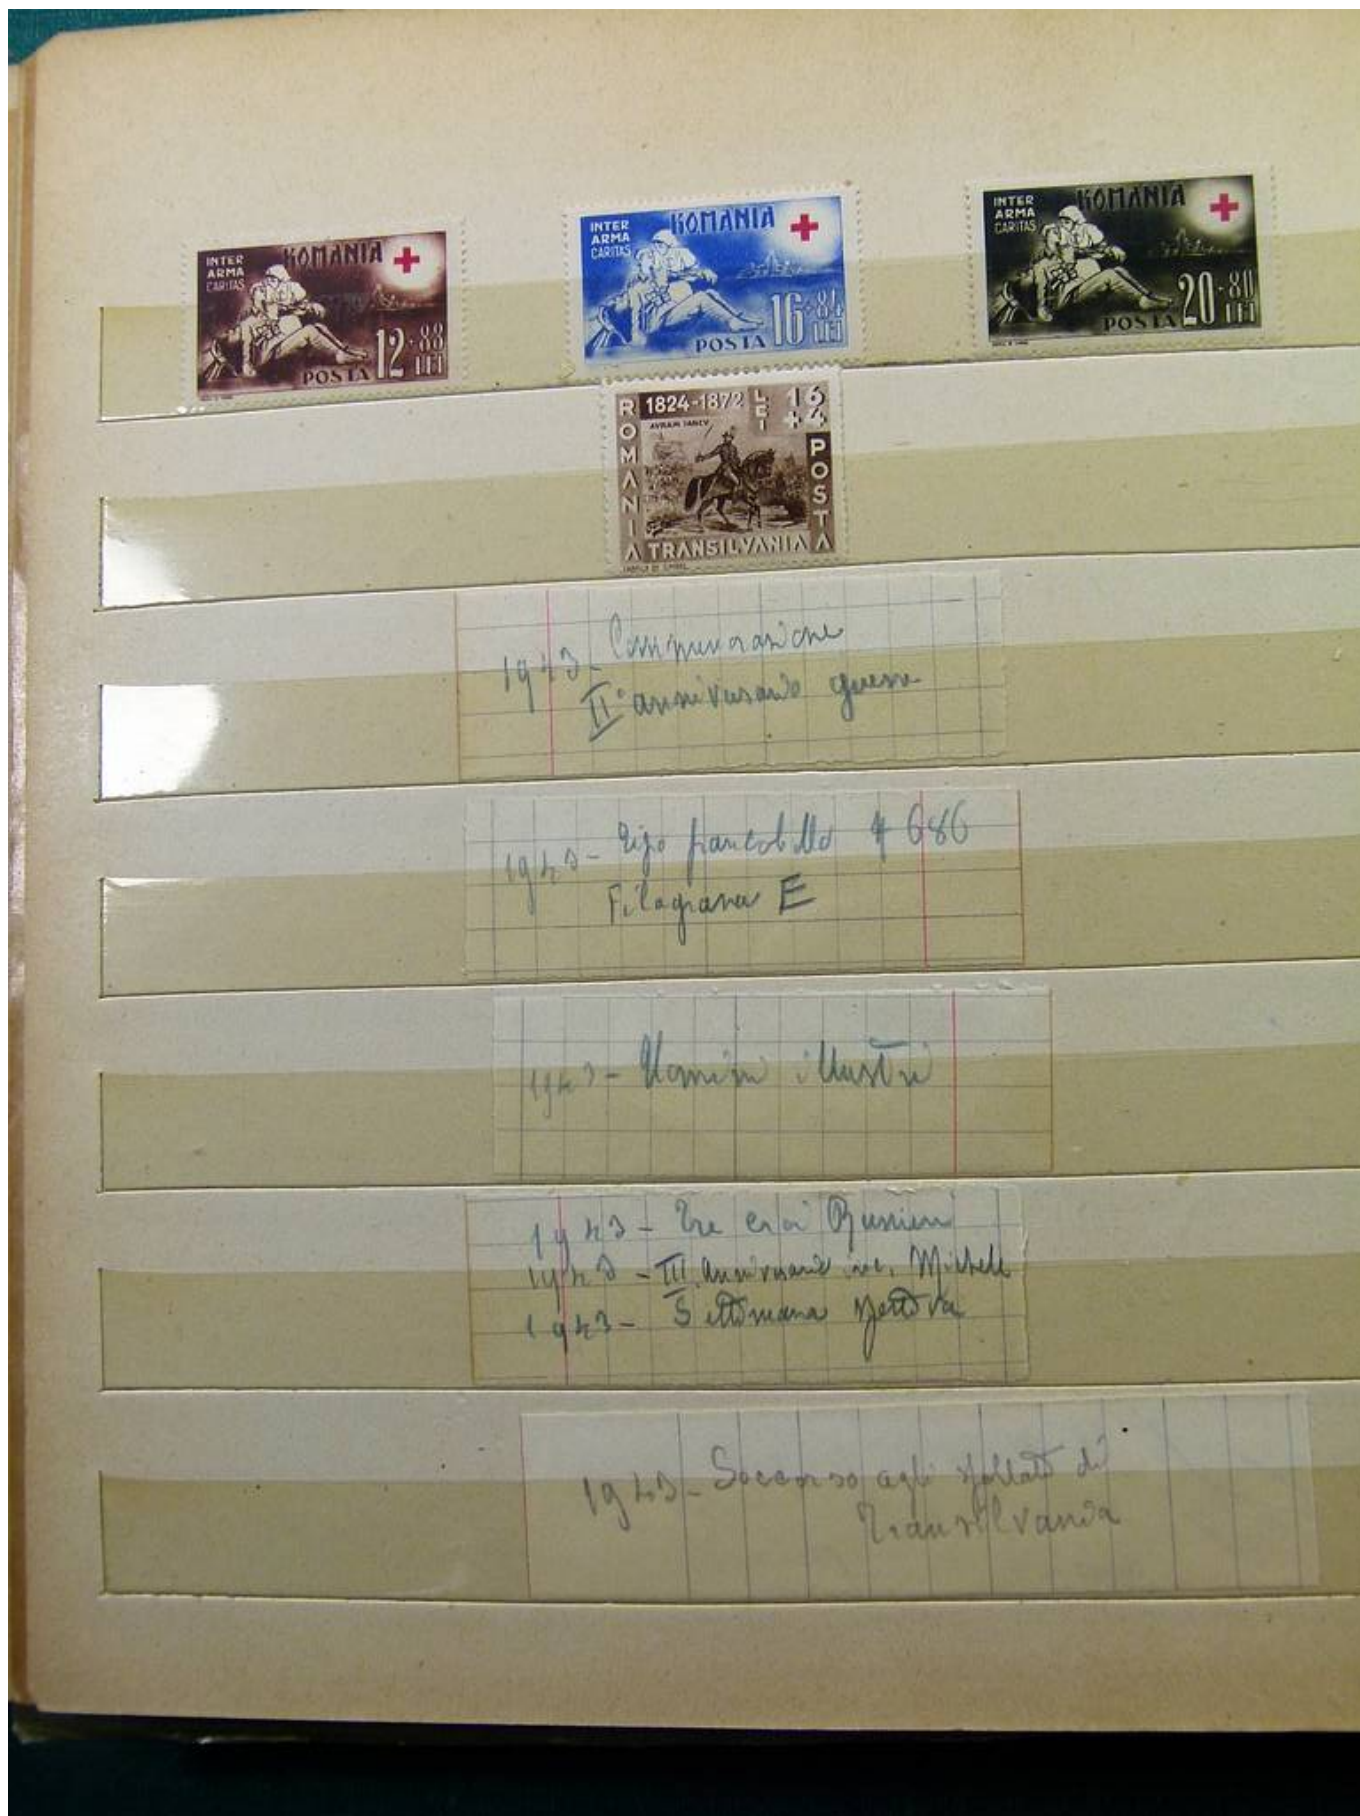 INTER ARMA CARITAS
ROMANIA
12+88 LEI
POSTA
INTER ARMA CARITAS
ROMANIA
16+84 LEI
POSTA
INTER ARMA CARITAS
ROMANIA
20+80 LEI
POSTA
ROMANIA
1824-1872
LEI 16+4
AVRAM IANCU
POSTA
TRANSILVANIA
1943 - Commemorazione
II° anniversario guerra
1943 - Tipo francobollo 686
Filagrana E
1943 - Uomini illustri
1943 - Tre eroi Rumeni
1943 - III Anniversario inc. Michele
1943 - Settimana sportiva
1943 - Soccorso agli sfollati di
Transilvania